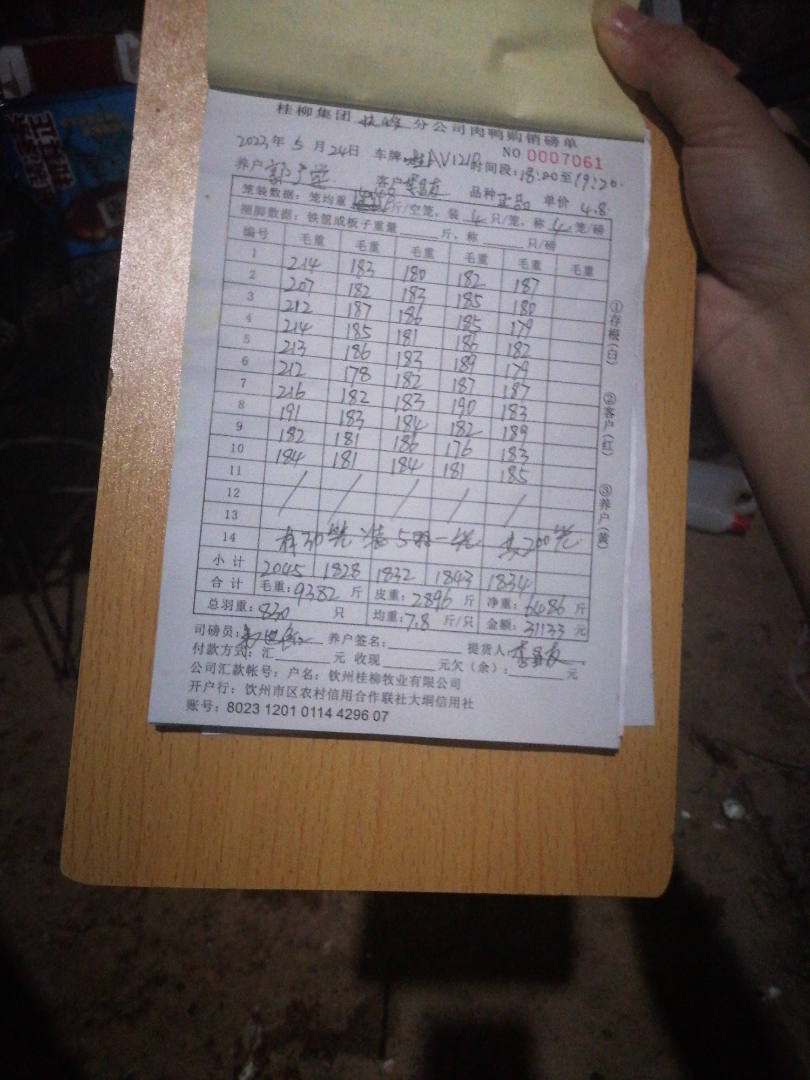 桂柳集团 分公司肉鸭购销磅单
NO 0007061
2023年 5 月 24日 车牌: AV121P 时间段: 18:00至19:20.
养户 客户 品种 正品 单价 4.8
笼装数据: 笼均重 斤/空笼, 装 4 只/笼, 称 4 笼/磅
捆脚数据: 铁筐或板子重量 斤, 称 只/磅
编号 毛重 毛重 毛重 毛重 毛重 毛重
1 214 183 180 182 187
2 207 182 183 185 180
3 212 187 186 185 179
4 214 185 181 186 182
5 213 186 183 189 179
6 212 178 182 187 187
7 216 182 183 190 183
8 191 183 184 182 189
9 182 181 186 176 183
10 184 181 184 181 185
11 / / / / /
12
13
14 有30笼 装5羽一笼 共200笼.
小计 2045 1828 1832 1843 1834
合计 毛重: 9382 斤 皮重: 2896 斤 净重: 6486 斤
总羽重: 830 只 均重: 7.8 斤/只 金额: 31133 元
司磅员: 养户签名: 提货人:
付款方式: 汇 元 收现 元欠(余): 元
公司汇款帐号: 户名: 钦州桂柳牧业有限公司
开户行: 钦州市区农村信用合作联社大垌信用社
账号: 8023 1201 0114 4296 07
①存根(白)
②客户(红)
③养户(黄)